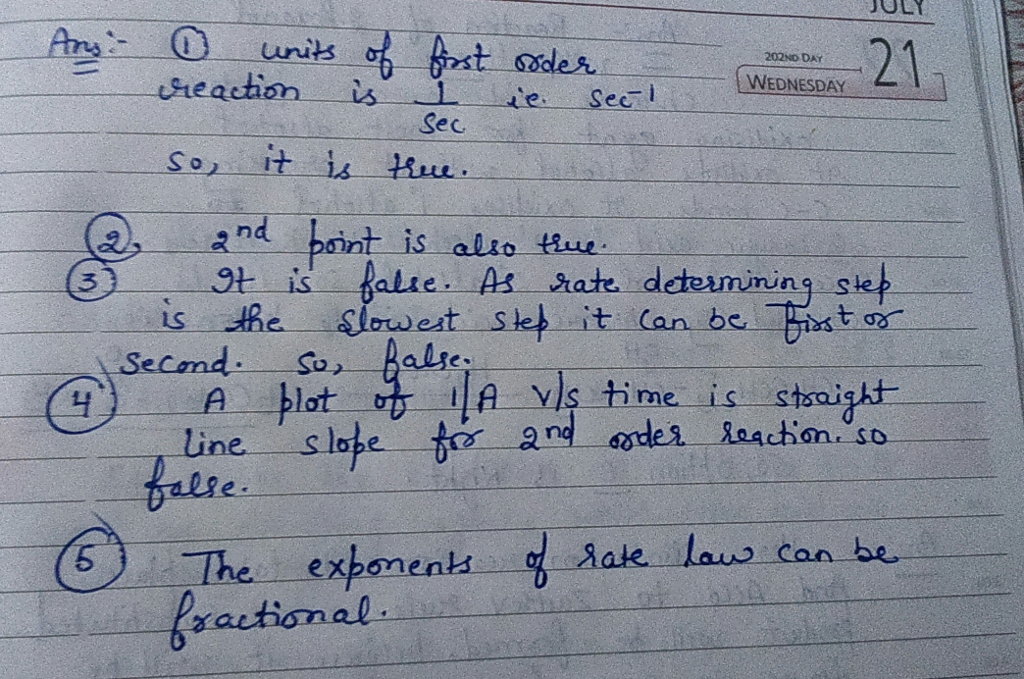 JULY
Ans:- ① units of first order
202ND DAY
WEDNESDAY 21
reaction is 1/sec ie. sec-1
so, it is true.
②, 2nd point is also true.
③ It is false. As rate determining step
is the slowest step it can be first or
second. so, false.
④ A plot of 1/A v/s time is straight
line slope for 2nd order reaction. so
false.
⑤ The exponents of rate law can be
fractional.